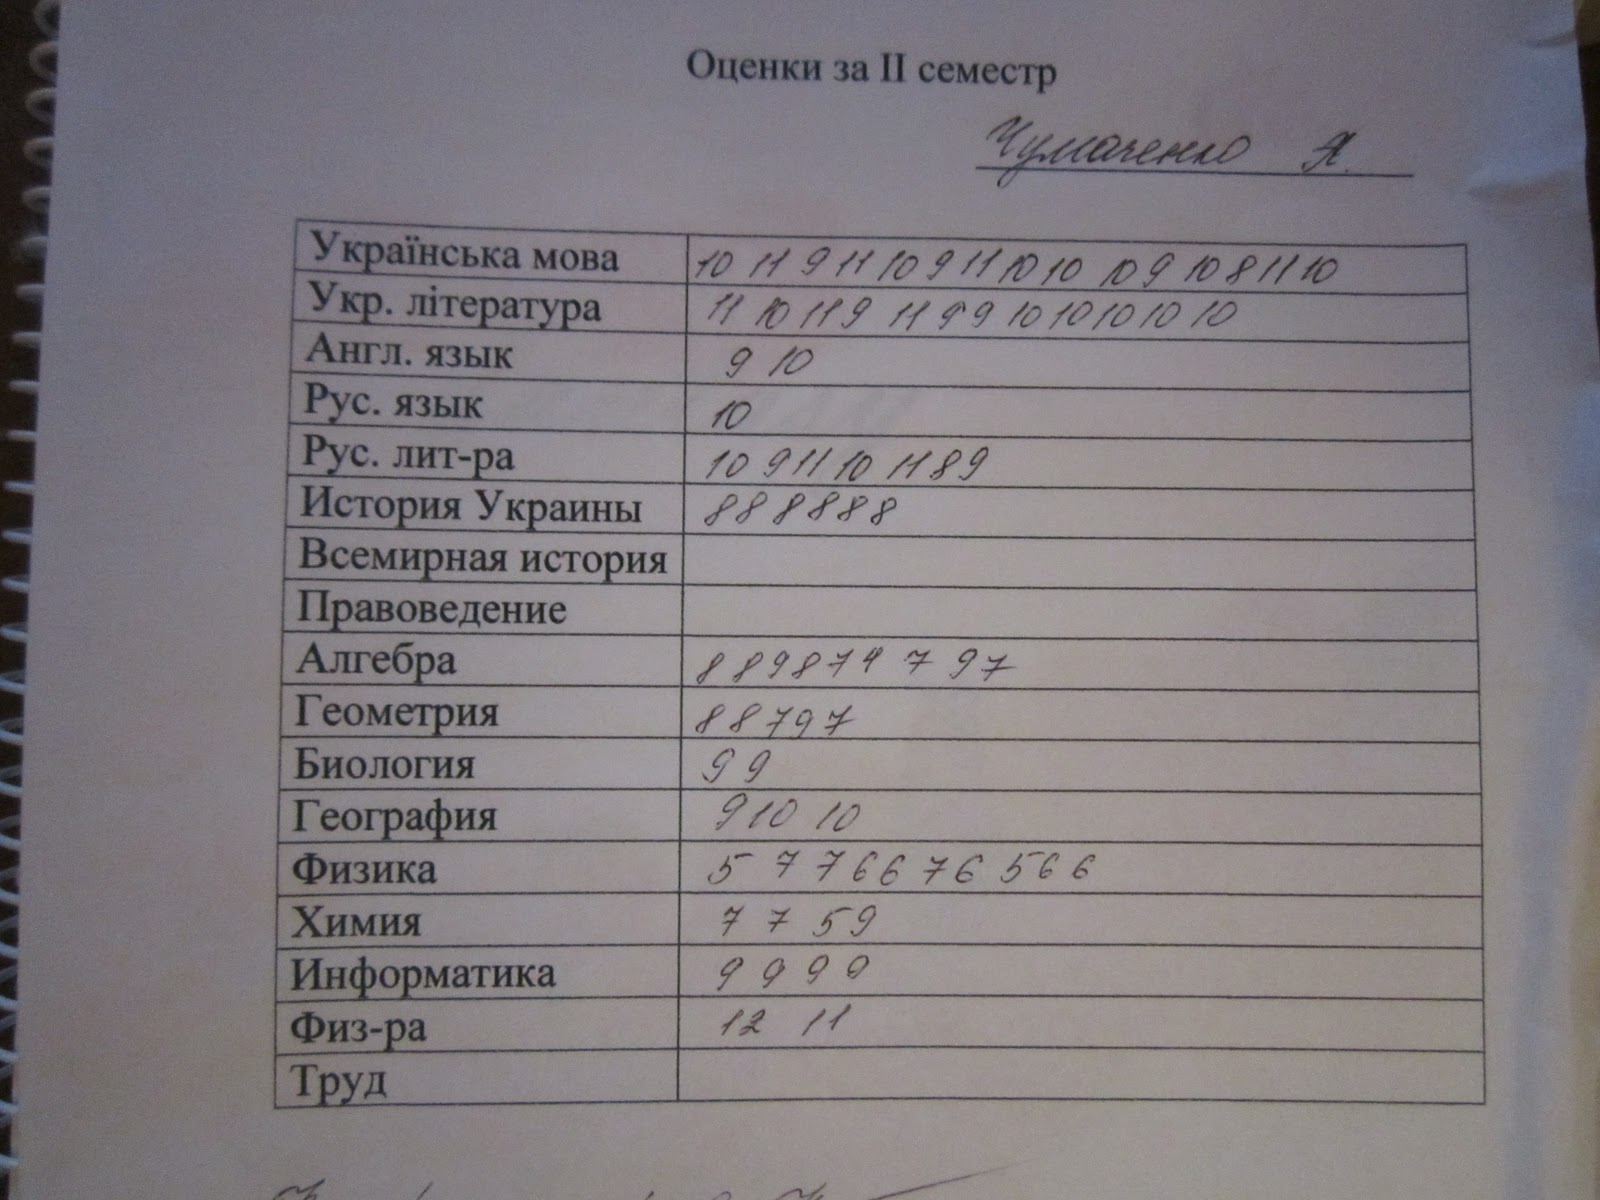 Оценки за II семестр
Чумаченко Я.
Українська мова 10 11 9 11 10 9 11 10 10 10 9 10 8 11 10
Укр. література 11 10 11 9 11 9 9 10 10 10 10 10
Англ. язык 9 10
Рус. язык 10
Рус. лит-ра 10 9 11 10 11 8 9
История Украины 8 8 8 8 8 8
Всемирная история
Правоведение
Алгебра 8 8 9 8 7 4 7 9 7
Геометрия 8 8 7 9 7
Биология 9 9
География 9 10 10
Физика 5 7 7 6 6 7 6 5 6 6
Химия 7 7 5 9
Информатика 9 9 9 9
Физ-ра 12 11
Труд